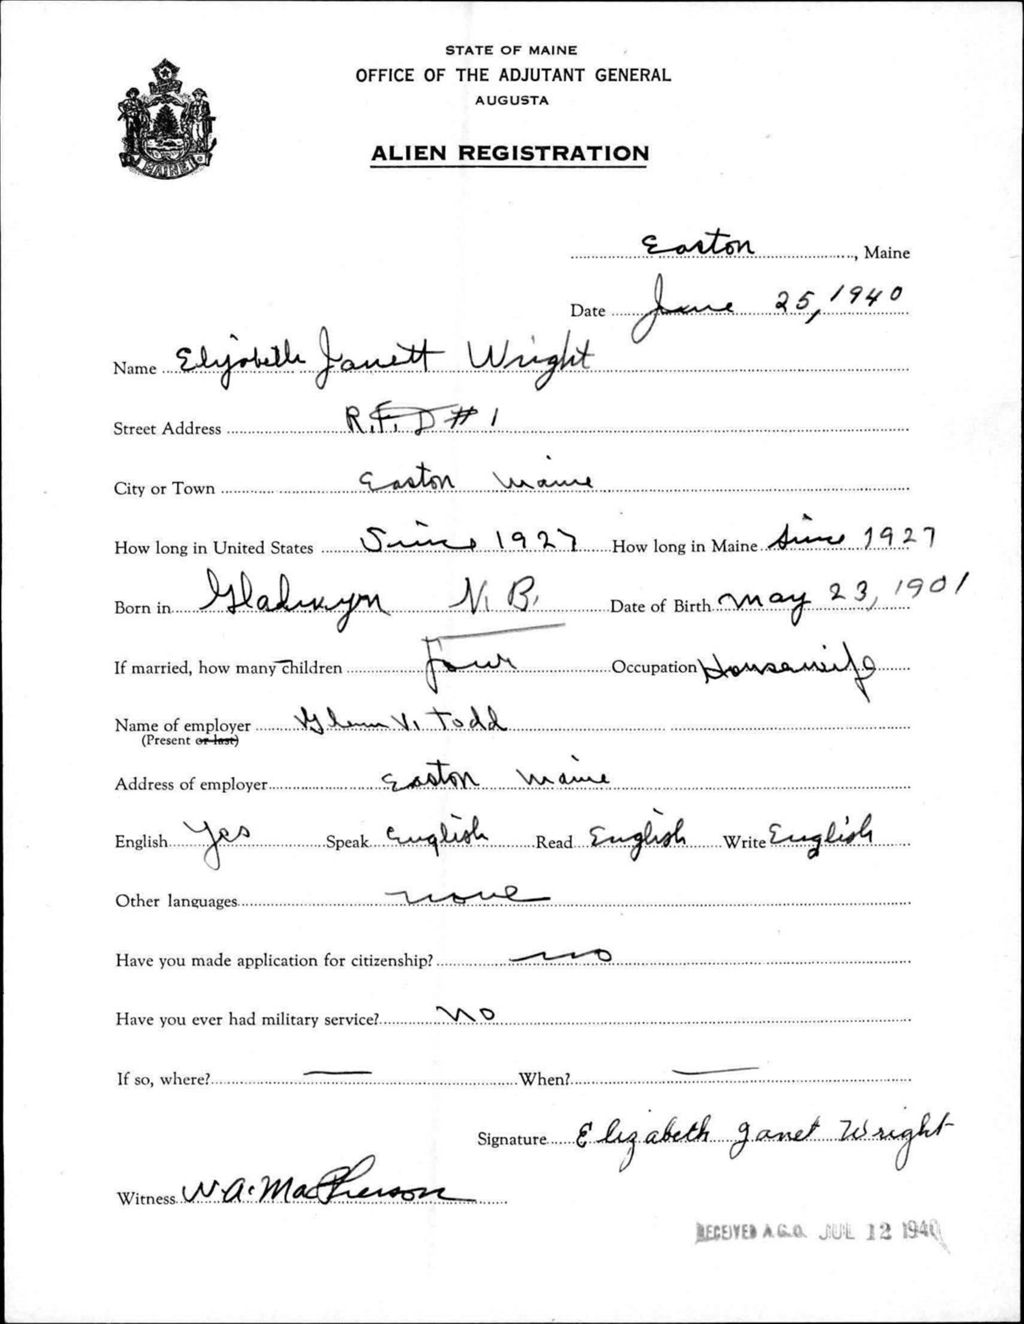 STATE OF MAINE
OFFICE OF THE ADJUTANT GENERAL
AUGUSTA
ALIEN REGISTRATION
MAINE
Easton, Maine
Date June 25, 1940
Name Elizabeth Janett Wright
Street Address R.F.D #1
City or Town Easton Maine
How long in United States Since 1927 How long in Maine Since 1927
Born in Gladwyn N.B. Date of Birth May 23, 1901
If married, how many children Four Occupation Housewife
Name of employer Glenn V. Todd
(Present or last)
Address of employer Easton Maine
English Yes Speak English Read English Write English
Other languages none
Have you made application for citizenship? no
Have you ever had military service? No
If so, where? — When? —
Signature Elizabeth Janet Wright
Witness W.A. MacPherson
RECEIVED A.G.O. JUL 12 1940